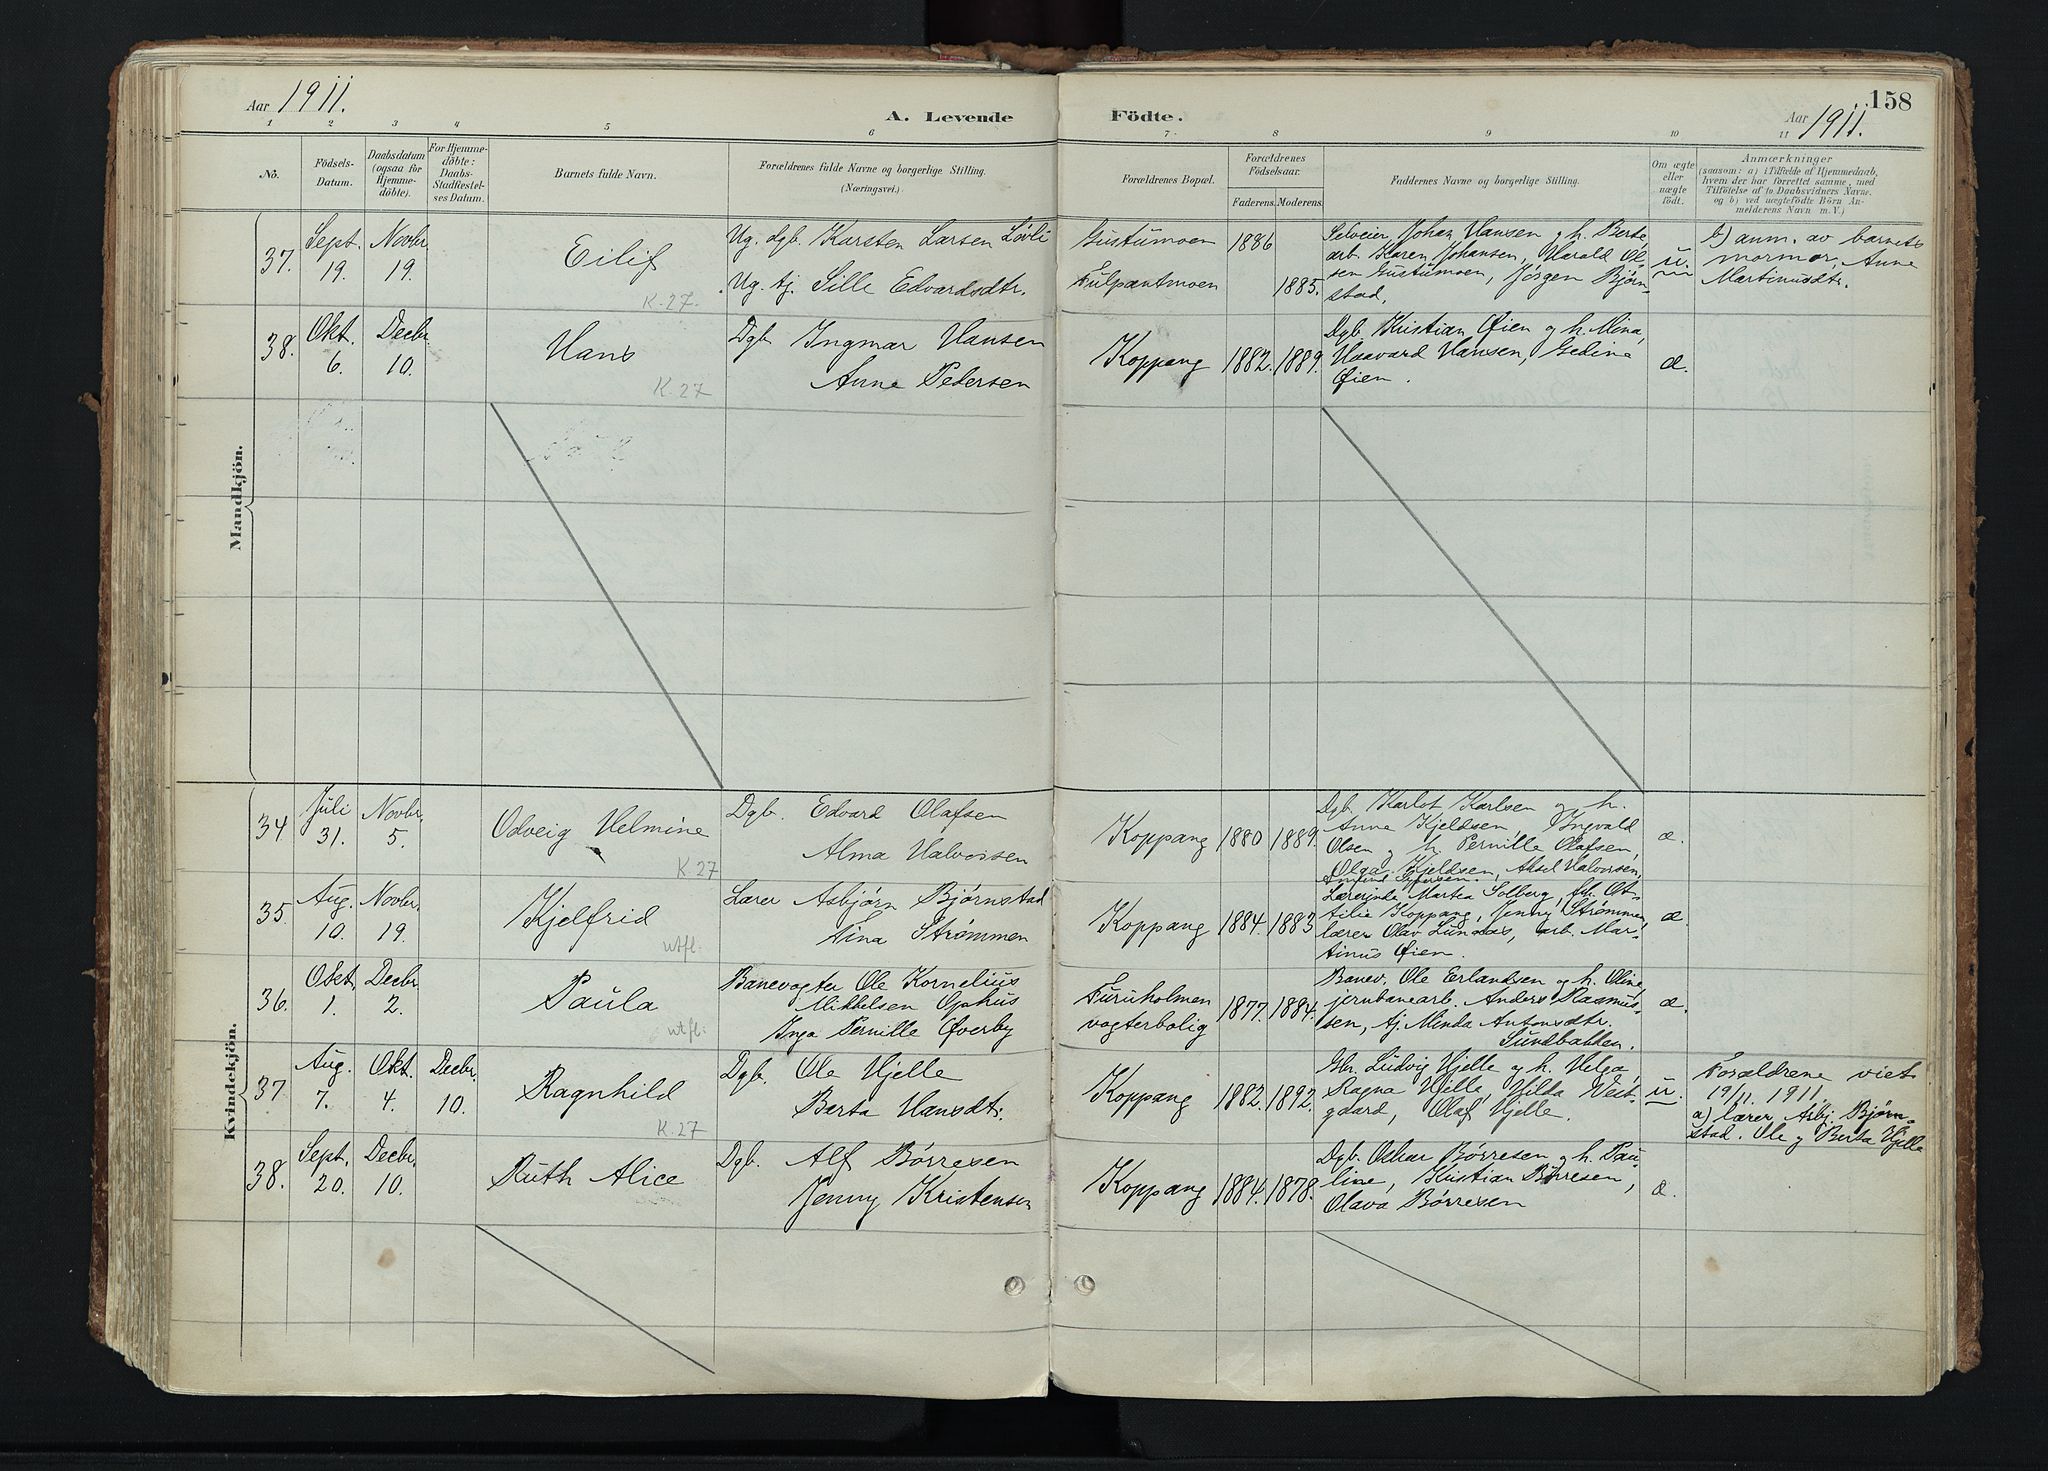 Aar 1911.
A. Levende Födte.
158
Aar 1911.
1 2 3 4 5 6 7 8 9 10 11
No.
Födsels-
Datum.
Daabsdatum
(ogsaa for
Hjemme-
döbte).
For Hjemme-
döbte:
Daabs-
Stadfæstel-
ses Datum.
Barnets fulde Navn.
Forældrenes fulde Navne og borgerlige Stilling.
(Næringsvei.)
Forældrenes Bopæl.
Forældrenes
Födselsaar.
Faderens. Moderens.
Faddernes Navne og borgerlige Stilling.
Om ægte
eller
uægte
födt.
Anmærkninger
(saasom: a) i Tilfælde af Hjemmedaab,
hvem der har forrettet samme, med
Tilföielse af to Daabsvidners Navne.
og b) ved uægtefödte Börn An-
melderens Navn m. V.)
Mandkjön.
37.
Sept.
19.
Novbr.
19.
Eilif
K. 27.
Ug. dgb. Karsten Larsen Løvli
Ug. tj. Sille Edvardsdtr.
Gustumoen
Fulpantmoen
1886
1885.
Selveier Johan Hansen og h. Berte,
arb. Karen Johansen, Harald Ol-
sen Gustumoen, Jørgen Bjørn-
stad.
u.
b) anm. av barnets
mormor, Anne
Martinusdtr.
38.
Okt.
6.
Decbr.
10.
Hans
K. 27
Dgb. Ingmar Hansen
Anne Pedersen
Koppang
1882.
1889.
Dgb. Kristian Øien og h. Mina,
Haavard Hansen, Gedine
Øien.
æ.
Kvindekjön.
34
Juli
31.
Novbr.
5.
Odveig Helmine
K. 27
Dgb. Edvard Olafsen
Alma Halvorsen
Koppang
1880
1889.
Dgb. Karlot Karlsen og h.
Anne Kjeldsen, Ingvald
Olsen og h. Pernille Olafsen,
Olga Kjeldsen, Aksel Halvorsen,
æ.
35
Aug.
10.
Novbr.
19.
Kjelfrid
utfl.
Lærer Asbjørn Bjørnstad
Nina Strømmen
Koppang
1884.
1883
Lærerinde Martea Solberg, frk. Ot-
tilie Koppang, Jenny Strømmen,
lærer Olav Lundaas, arb. Mar-
tinus Øien.
æ
36.
Okt.
1.
Decbr.
2.
Paula
utfl.
Banevogter Ole Kornelius
Mikkelsen Ophus
Inga Pernille Øverby
Furuholmen
vogterbolig
1877.
1884.
Banev. Ole Erlandsen og h. Oline,
jernbanearb. Anders Rasmus-
sen, tj. Minda Antonsdtr.
Sundbakken.
æ.
37
Aug.
7.
Okt.
4.
Decbr.
10.
Ragnhild
K. 27
Dgb. Ole Hjelle
Berta Hansdtr.
Koppang
1882.
1892.
Gbr. Ludvig Hjelle og h. Helga,
Ragna Hjelle, Hilda Vest-
gaard, Olaf Hjelle.
u.
Forældrene viet
19/11 1911.
a) lærer Asbj. Bjørn-
stad. Ole og Berta Hjelle
38.
Sept.
20.
Decbr.
10.
Ruth Alice
Dgb. Alf Børresen
Jenny Kristensen
Koppang
1884.
1878.
Dgb. Oskar Børresen og h. Pau-
line, Kristian Børresen,
Olava Børresen
æ.